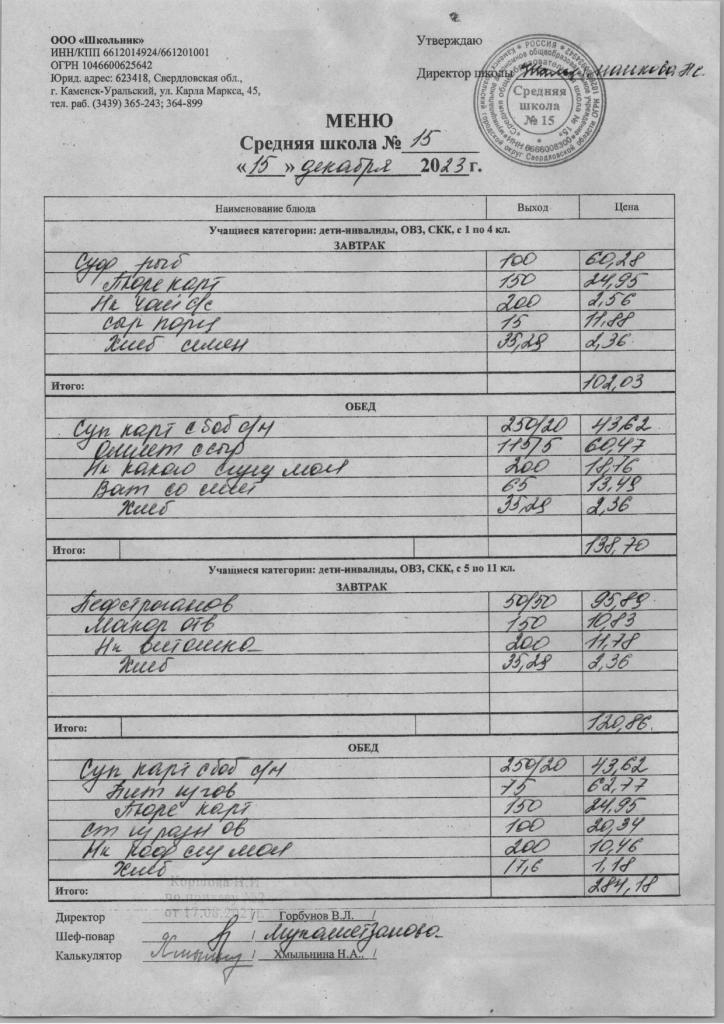 ООО «Школьник»
ИНН/КПП 6612014924/661201001
ОГРН 1046600625642
Юрид. адрес: 623418, Свердловская обл.,
г. Каменск-Уральский, ул. Карла Маркса, 45,
тел. раб. (3439) 365-243; 364-899
Утверждаю
Директор школы
Средняя
школа
№ 15
МЕНЮ
Средняя школа № 15
«15» декабря 2023г.
Наименование блюда Выход Цена
Учащиеся категории: дети-инвалиды, ОВЗ, СКК, с 1 по 4 кл.
ЗАВТРАК
Суф рыб 100 60,28
Пюре карт 150 24,95
Нк чай с/с 200 2,56
Сыр порц 15 11,88
Хлеб 35,29 2,36
Итого: 102,03
ОБЕД
Суп карт с боб с/м 250/20 43,62
Омлет с сыр 115/5 60,47
Нк какао сгущ мол 200 18,76
Ват со 65 13,49
Хлеб 35,29 2,36
Итого: 138,70
Учащиеся категории: дети-инвалиды, ОВЗ, СКК, с 5 по 11 кл.
ЗАВТРАК
Бефстроганов 50/50 95,89
Макар отв 150 10,83
Нк витошка 200 11,78
Хлеб 35,29 2,36
Итого: 120,86
ОБЕД
Суп карт с боб с/м 250/20 43,62
75 62,77
Пюре карт 150 24,95
100 20,34
Нк коф сгу мол 200 10,46
Хлеб 17,6 1,18
Итого: 284,18
от 17.08.2021г.
Директор / Горбунов В.Л. /
Шеф-повар / Мухаметзанова
Калькулятор / Хмыльнина Н.А.. /